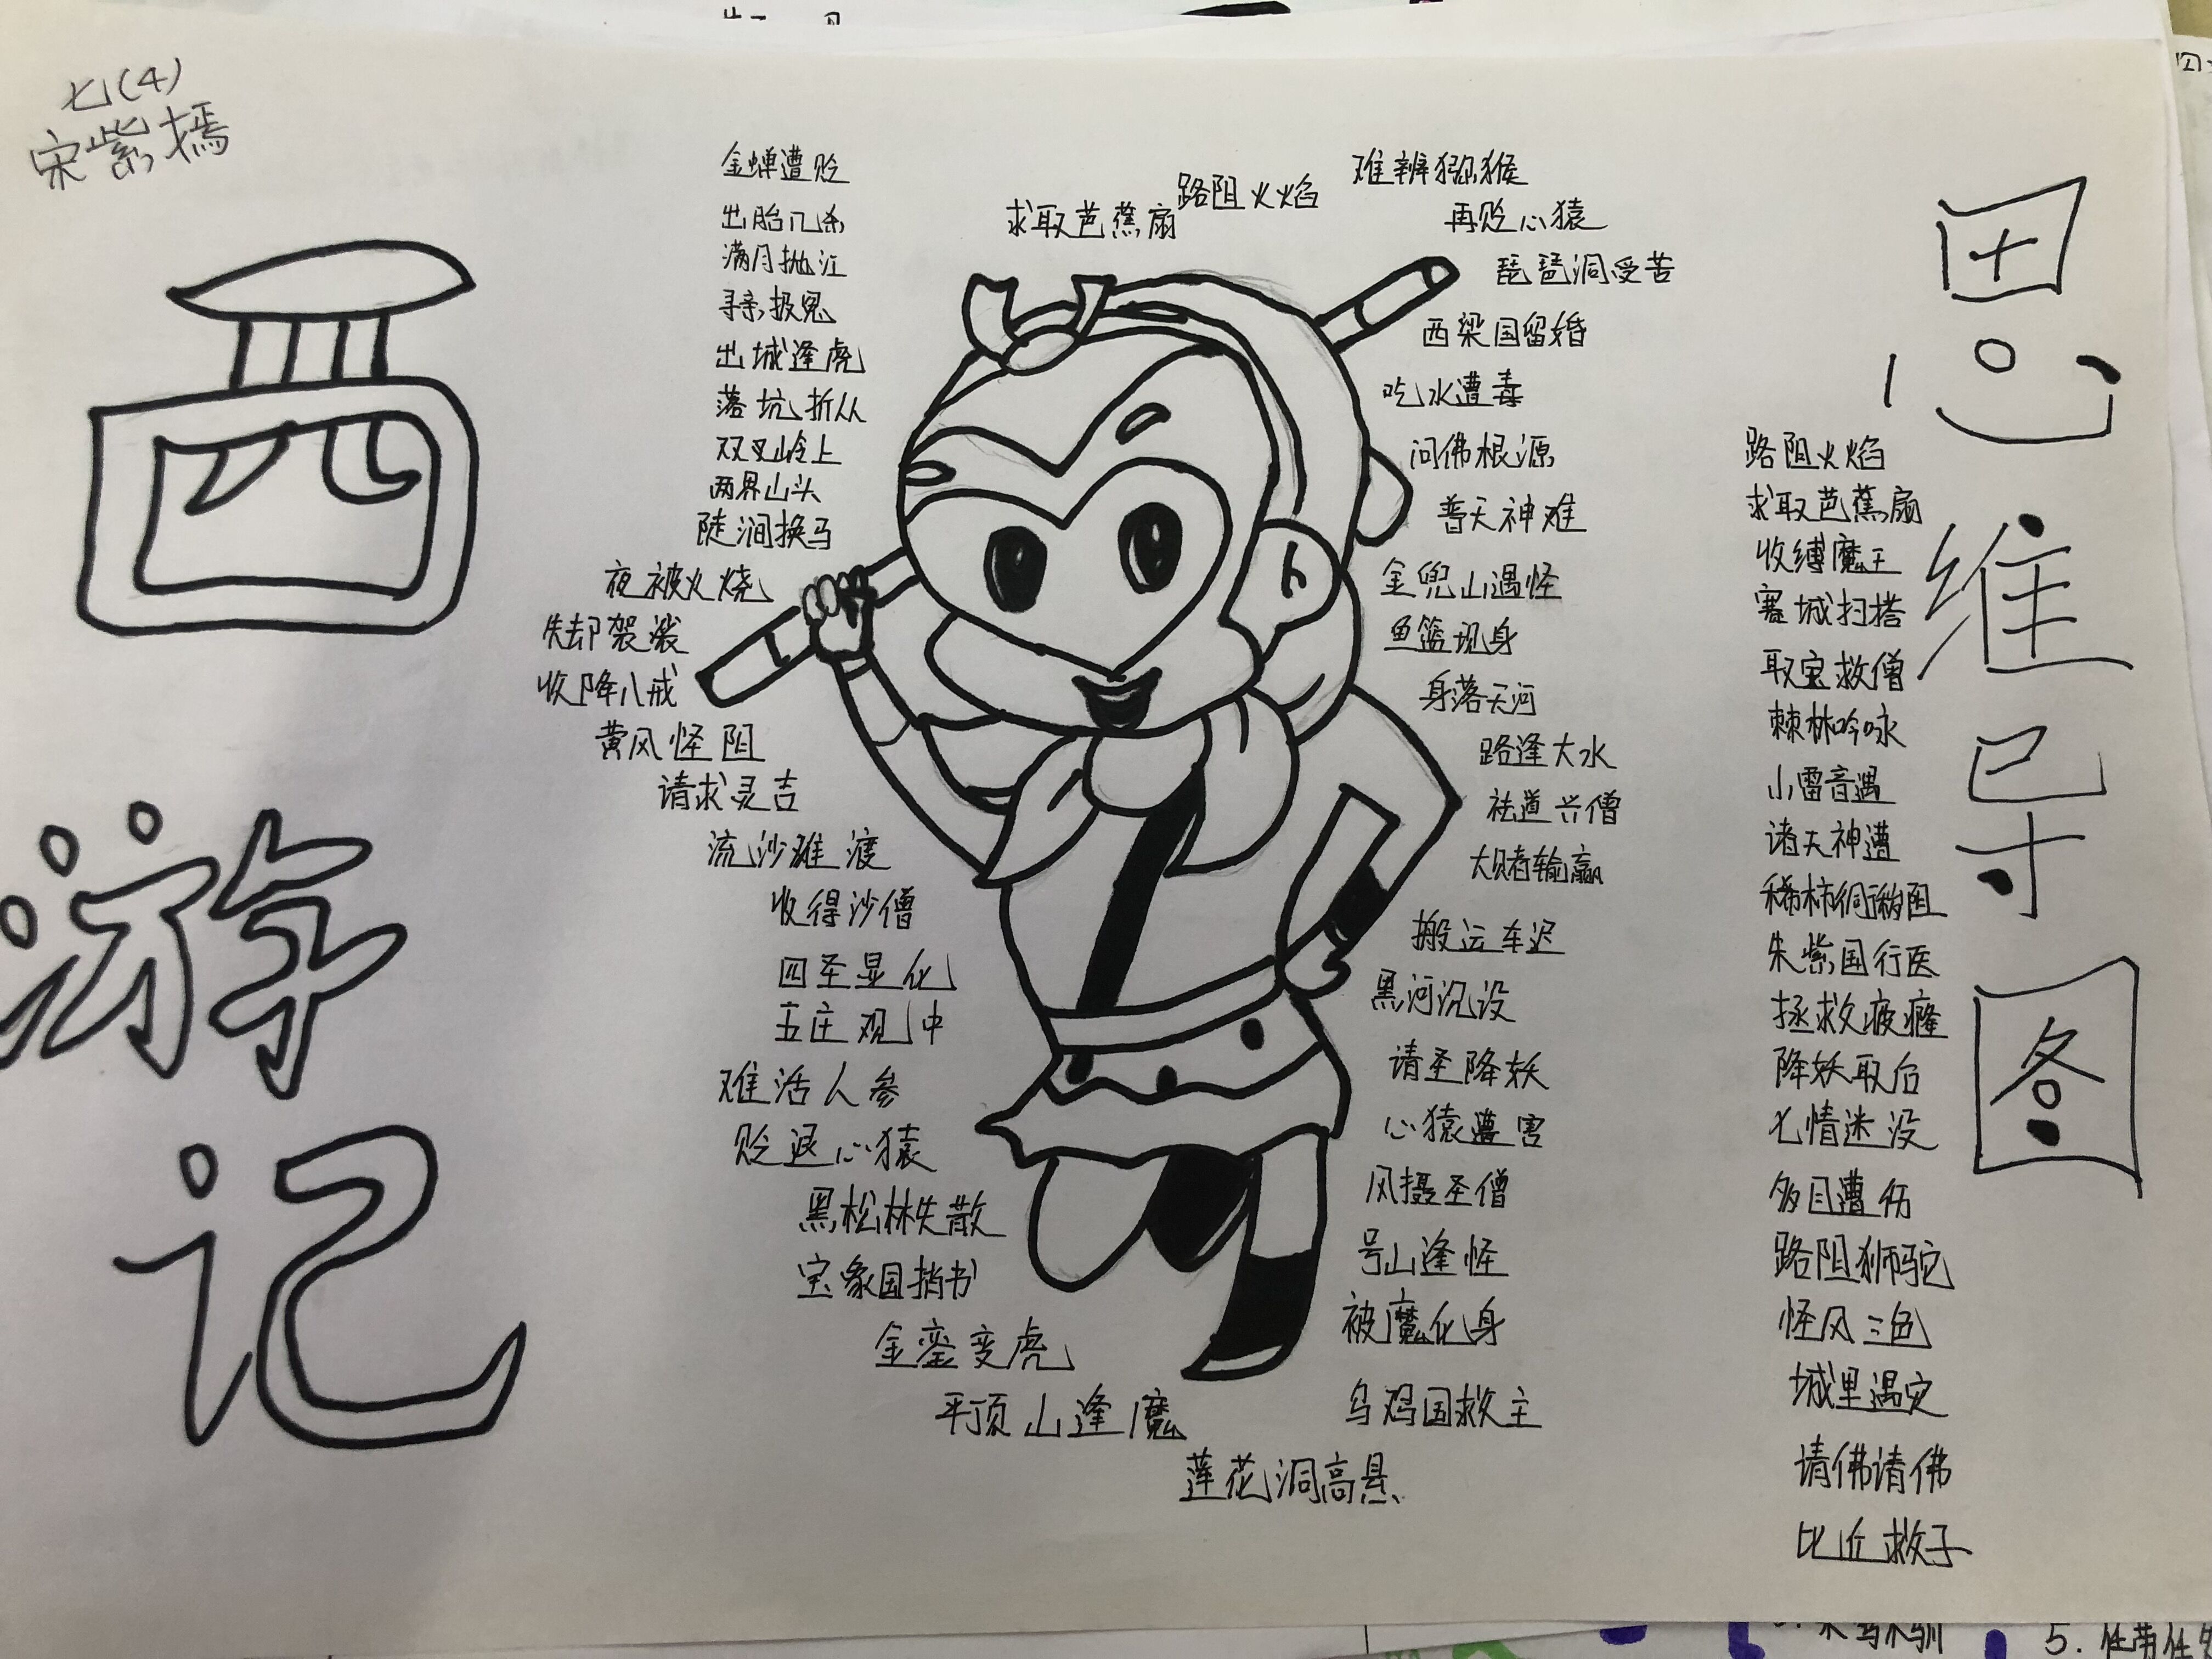 七(4)
宋紫摀
西
游
记
金蝉遭贬
出胎几杀
满月抛江
寻亲报冤
出城逢虎
落坑折从
双叉岭上
两界山头
陡涧换马
夜被火烧
失却袈裟
收降八戒
黄风怪阻
请求灵吉
流沙难渡
收得沙僧
四圣显化
五庄观中
难活人参
贬退心猿
黑松林失散
宝象国捎书
金銮变虎
平顶山逢魔
莲花洞高悬
乌鸡国救主
被魔化身
号山逢怪
风摄圣僧
心猿遭害
请圣降妖
黑河沉没
搬运车迟
大赌输赢
祛道兴僧
路逢大水
身落天河
鱼篮现身
金兜山遇怪
普天神难
问佛根源
吃水遭毒
西梁国留婚
琵琶洞受苦
再贬心猿
难辨猕猴
路阻火焰
求取芭蕉扇
思
维
导
图
路阻火焰
求取芭蕉扇
收缚魔王
赛城扫塔
取宝救僧
棘林吟咏
小雷音遇
诸天神遭
稀柿衕秽阻
朱紫国行医
拯救疲癃
降妖取后
七情迷没
多目遭伤
路阻狮驼
怪风三色
城里遇灾
请佛请佛
比丘救子